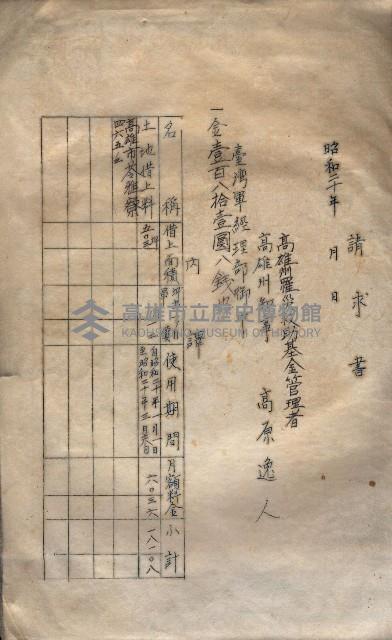 請求書
昭和二十年 月 日
高雄州罹災救助基金管理者
高雄州知事 高原逸人
臺灣軍經理部御中
一金壹百八拾壹圓八錢也
内譯
名稱 借上面積 使用期間 月額料金 小計
土地借上料
高雄市苓雅寮
四六五ノ二
五〇三坪
自昭和二十年一月一日
至昭和二十年三月
六〇三六
一八一〇八
高雄市立歷史博物館
KAOHSIUNG MUSEUM OF HISTORY